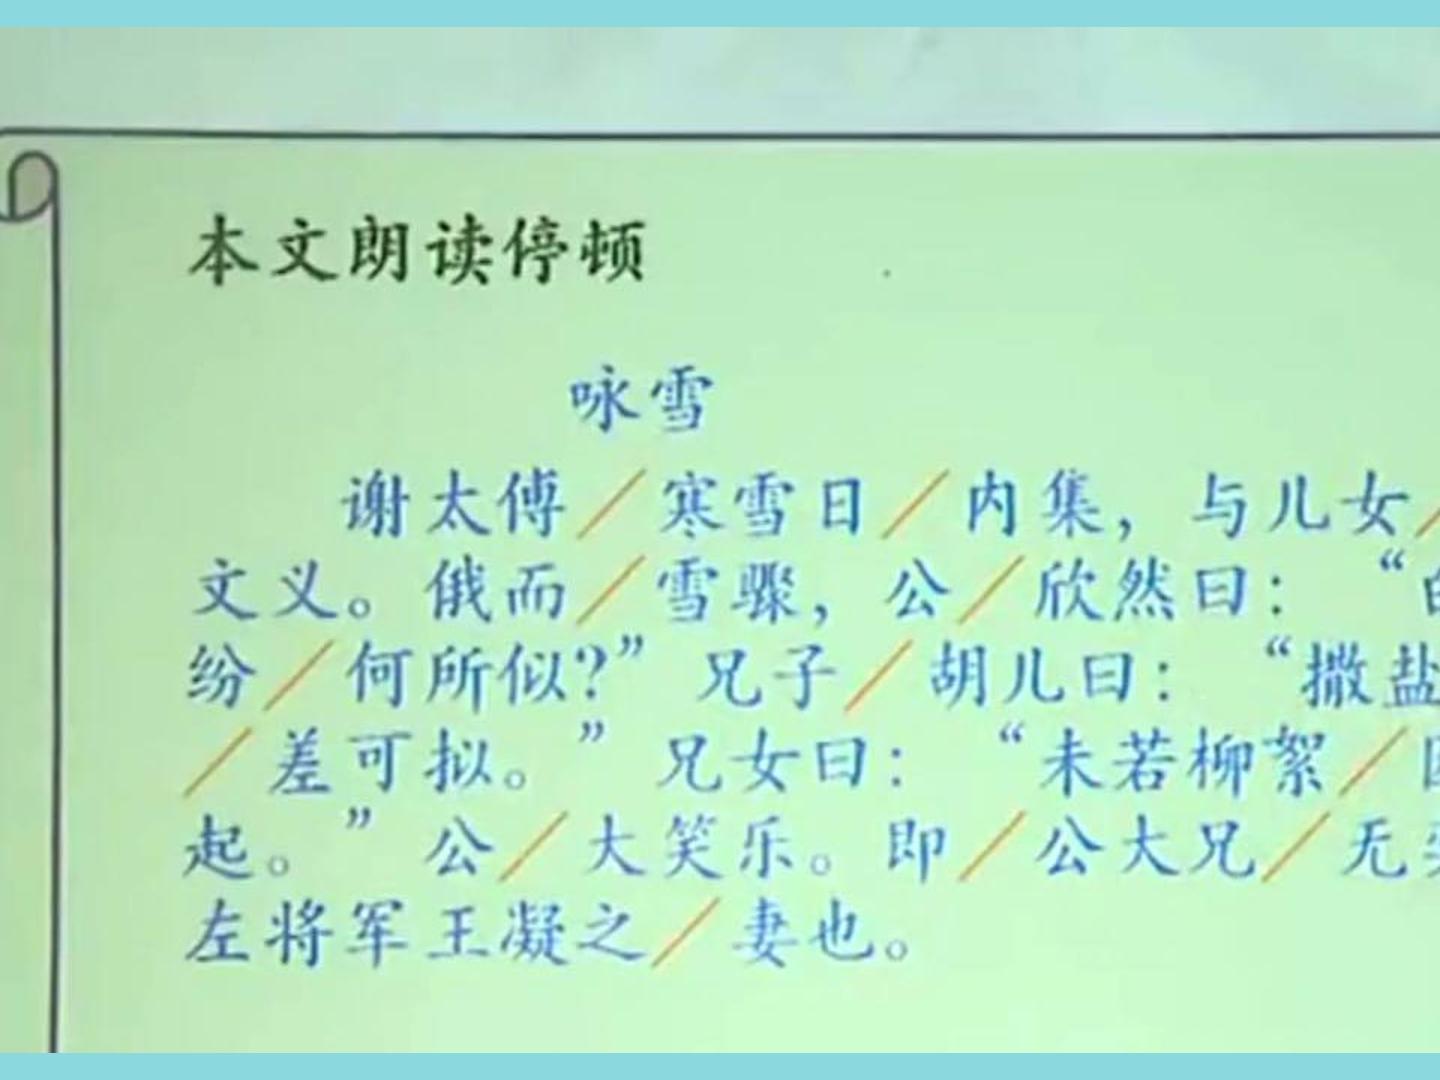 本文朗读停顿
咏雪
谢太傅／寒雪日／内集，与儿女／
文义。俄而／雪骤，公／欣然曰：“
纷／何所似?”兄子／胡儿曰：“撒盐
／差可拟。”兄女曰：“未若柳絮／
起。”公／大笑乐。即／公大兄／无
左将军王凝之／妻也。